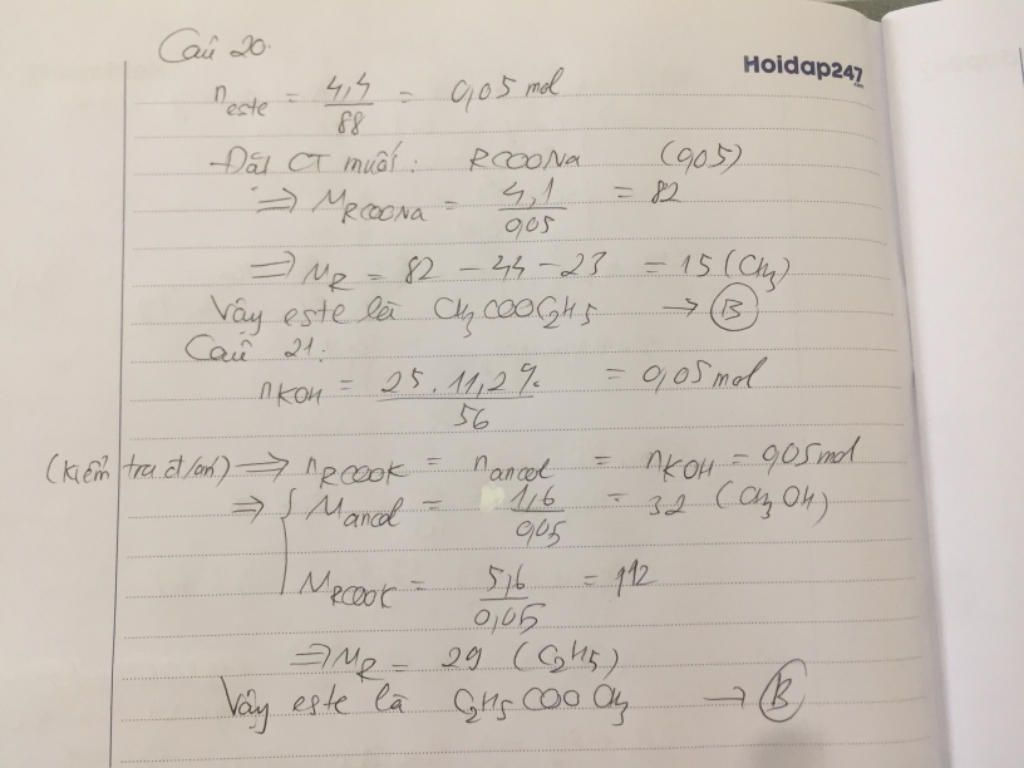 Câu 20.
Hoidap247
.com
n este = 4,4/88 = 0,05 mol
Đặt CT muối: RCOONa (0,05)
=> M RCOONa = 4,1/0,05 = 82
=> M R = 82 - 44 - 23 = 15 (CH3)
Vậy este là CH3COOC2H5 → B
Câu 21:
n KOH = 25.11,2%/56 = 0,05 mol
(Kiểm tra ct/) => n RCOOK = n ancol = n KOH = 0,05 mol
=> { M ancol = 1,6/0,05 = 32 (CH3OH)
M RCOOK = 5,6/0,05 = 112
=> M R = 29 (C2H5)
Vậy este là C2H5COOCH3 → B